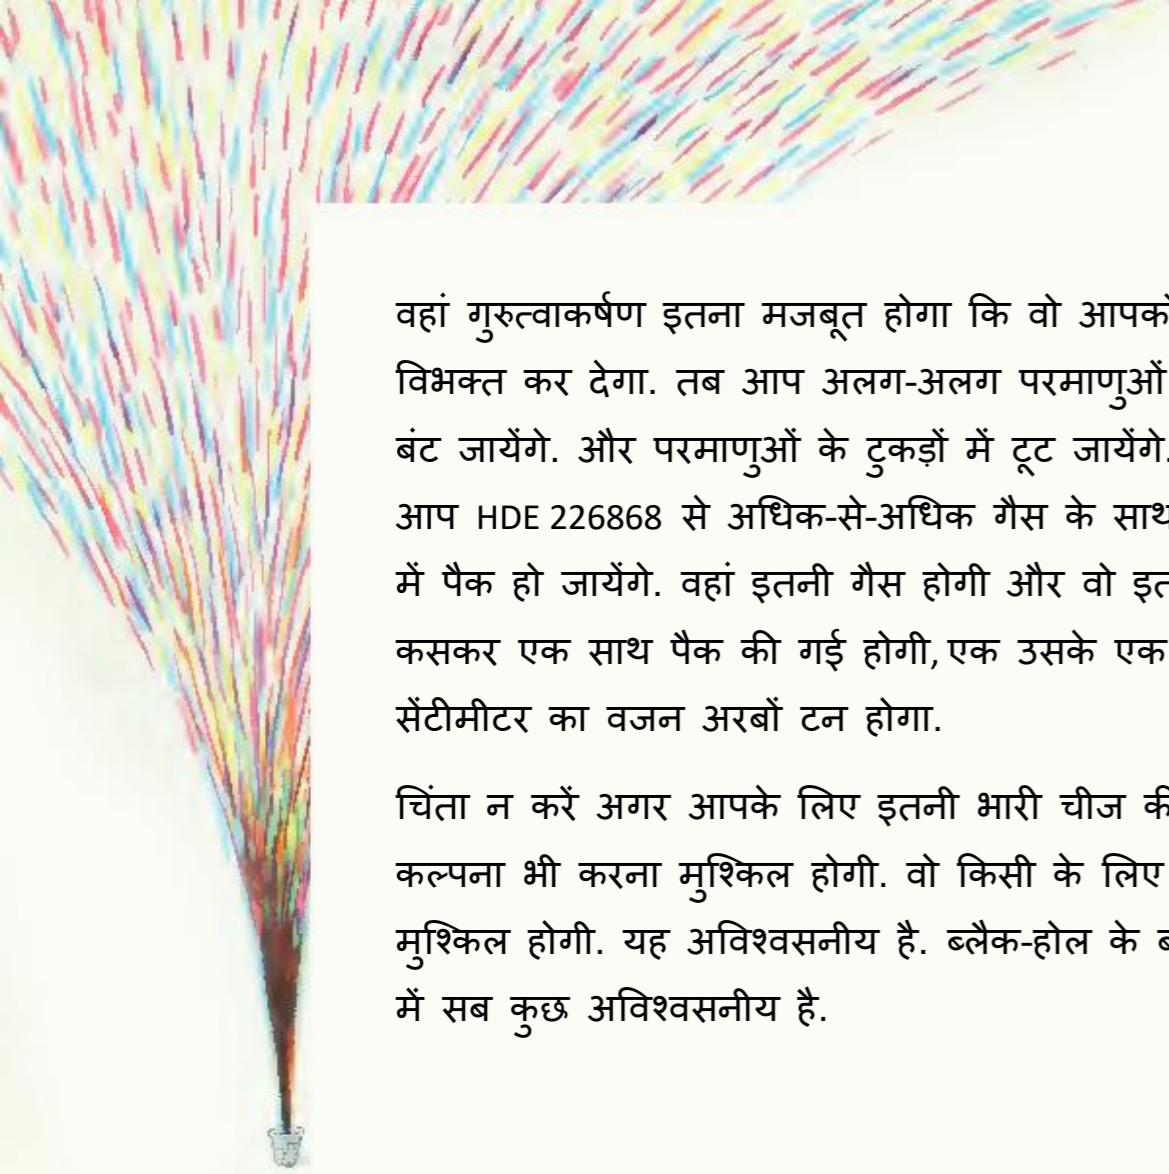 वहां गुरुत्वाकर्षण इतना मजबूत होगा कि वो आपको
विभक्त कर देगा. तब आप अलग-अलग परमाणुओं
बंट जायेंगे. और परमाणुओं के टुकड़ों में टूट जायेंगे.
आप HDE 226868 से अधिक-से-अधिक गैस के साथ
में पैक हो जायेंगे. वहां इतनी गैस होगी और वो
कसकर एक साथ पैक की गई होगी, एक उसके एक
सेंटीमीटर का वजन अरबों टन होगा.
चिंता न करें अगर आपके लिए इतनी भारी चीज की
कल्पना भी करना मुश्किल होगी. वो किसी के लिए
मुश्किल होगी. यह अविश्वसनीय है. ब्लैक-होल के
में सब कुछ अविश्वसनीय है.